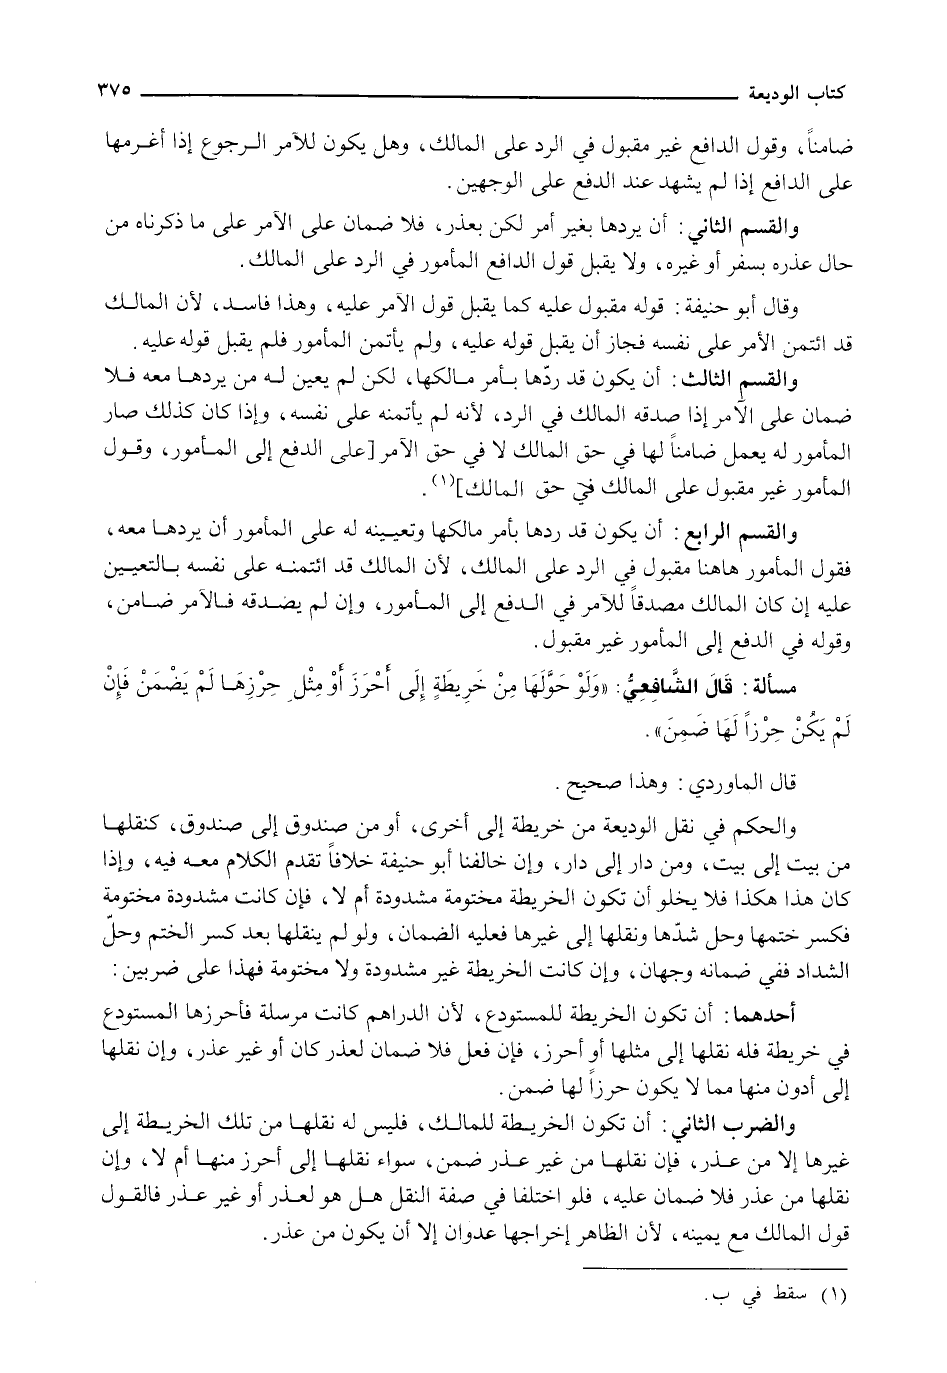 كتاب الوديعة ٣٧٥
ضامناً، وقول الدافع غير مقبول في الرد على المالك، وهل يكون للآمر الرجوع إذا أغرمها
على الدافع إذا لم يشهد عند الدفع على الوجهين.
والقسم الثاني: أن يردها بغير أمر لكن بعذر، فلا ضمان على الآمر على ما ذكرناه من
حال عذره بسفر أو غيره، ولا يقبل قول الدافع المأمور في الرد على المالك.
وقال أبو حنيفة: قوله مقبول عليه كما يقبل قول الآمر عليه، وهذا فاسد، لأن المالك
قد ائتمن الآمر على نفسه فجاز أن يقبل قوله عليه، ولم يأتمن المأمور فلم يقبل قوله عليه.
والقسم الثالث: أن يكون قد ردّها بأمر مالكها، لكن لم يعين له من يردها معه فلا
ضمان على الآمر إذا صدقه المالك في الرد، لأنه لم يأتمنه على نفسه، وإذا كان كذلك صار
المأمور له يعمل ضامناً لها في حق المالك لا في حق الآمر [على الدفع إلى المأمور، وقول
المأمور غير مقبول على المالك في حق المالك](١).
والقسم الرابع: أن يكون قد ردها بأمر مالكها وتعيينه له على المأمور أن يردها معه،
فقول المأمور هاهنا مقبول في الرد على المالك، لأن المالك قد ائتمنه على نفسه بالتعيين
عليه إن كان المالك مصدقاً للآمر في الدفع إلى المأمور، وإن لم يضدقه فالآمر ضامن،
وقوله في الدفع إلى المأمور غير مقبول.
مسألة: قَالَ الشَّافِعِيُّ: «وَلَوْ حَوَّلَهَا مِنْ خَرِيطَةٍ إِلَى أَحْرَزَ أَوْ مِثْلِ حِرْزِهَا لَمْ يَضْمَنْ فَإِنْ
لَمْ يَكُنْ حِرْزاً لَهَا ضَمِنَ».
قال الماوردي: وهذا صحيح.
والحكم في نقل الوديعة من خريطة إلى أخرى، أو من صندوق إلى صندوق، كنقلها
من بيت إلى بيت، ومن دار إلى دار، وإن خالفنا أبو حنيفة خلافاً تقدم الكلام معه فيه، وإذا
كان هذا هكذا فلا يخلو أن تكون الخريطة مختومة مشدودة أم لا، فإن كانت مشدودة مختومة
فكسر ختمها وحل شدّها ونقلها إلى غيرها فعليه الضمان، ولو لم ينقلها بعد كسر الختم وحلّ
الشداد ففي ضمانه وجهان، وإن كانت الخريطة غير مشدودة ولا مختومة فهذا على ضربين:
أحدهما: أن تكون الخريطة للمستودع، لأن الدراهم كانت مرسلة فأحرزها المستودع
في خريطة فله نقلها إلى مثلها أو أحرز، فإن فعل فلا ضمان لعذر كان أو غير عذر، وإن نقلها
إلى أدون منها مما لا يكون حرزاً لها ضمن.
والضرب الثاني: أن تكون الخريطة للمالك، فليس له نقلها من تلك الخريطة إلى
غيرها إلا من عذر، فإن نقلها من غير عذر ضمن، سواء نقلها إلى أحرز منها أم لا، وإن
نقلها من عذر فلا ضمان عليه، فلو اختلفا في صفة النقل هل هو لعذر أو غير عذر فالقول
قول المالك مع يمينه، لأن الظاهر إخراجها عدوان إلا أن يكون من عذر.
(١) سقط في ب.